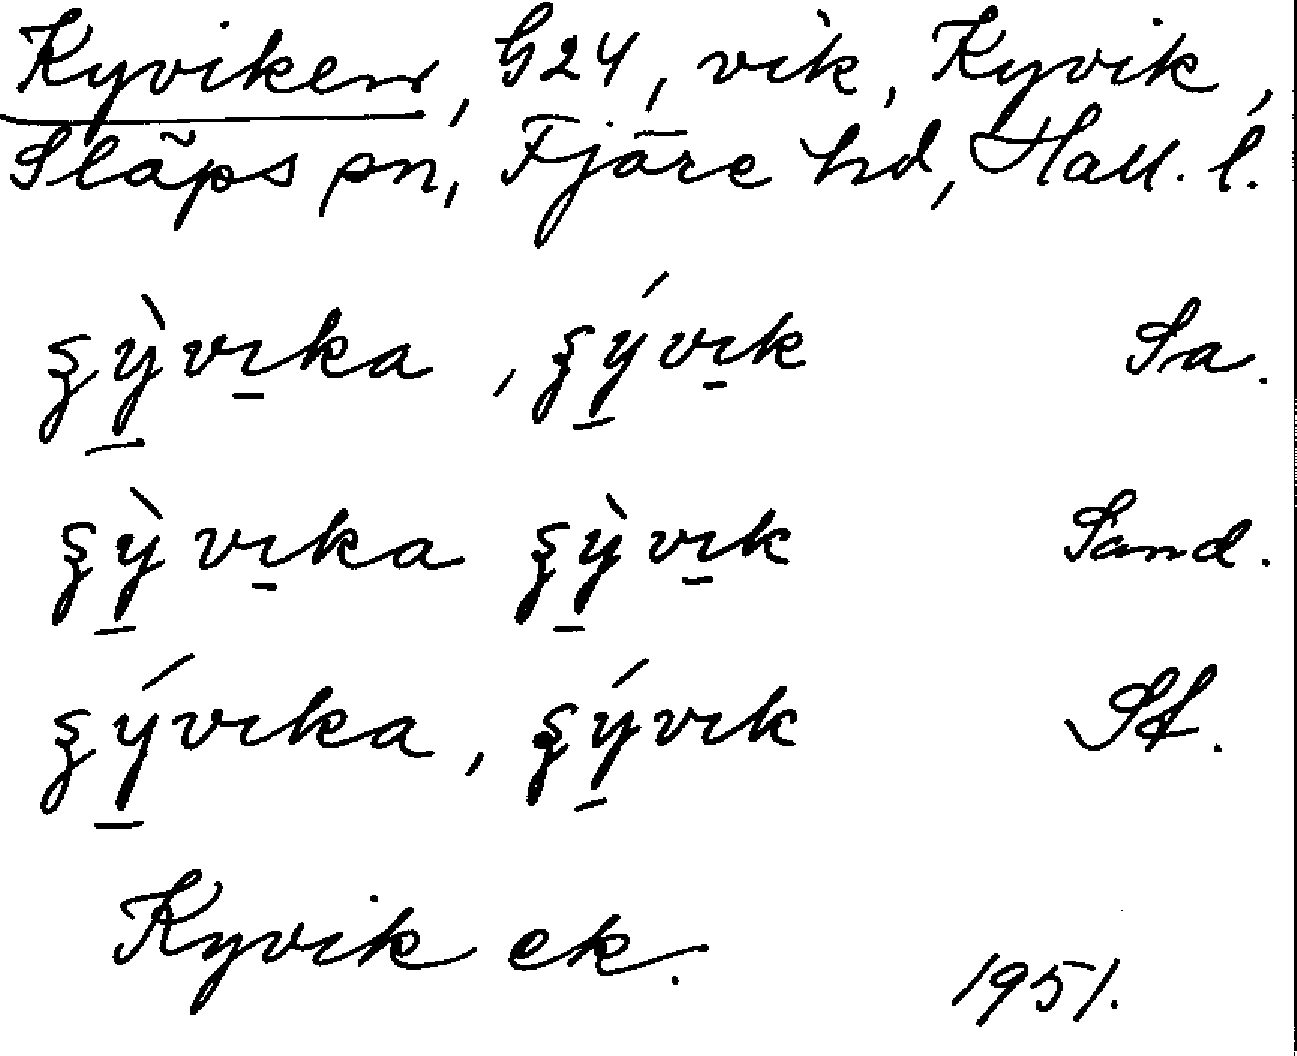 Kyviken, G24, vik, Kyvik,
Släps sn, Fjäre hd, Hall. l.
ʂỳvɪka, ʂývɪk Sa.
ʂỳvɪka ʂỳvɪk Sand.
ʂývɪka, ʂývɪk St.
Kyvik ek. 1951.